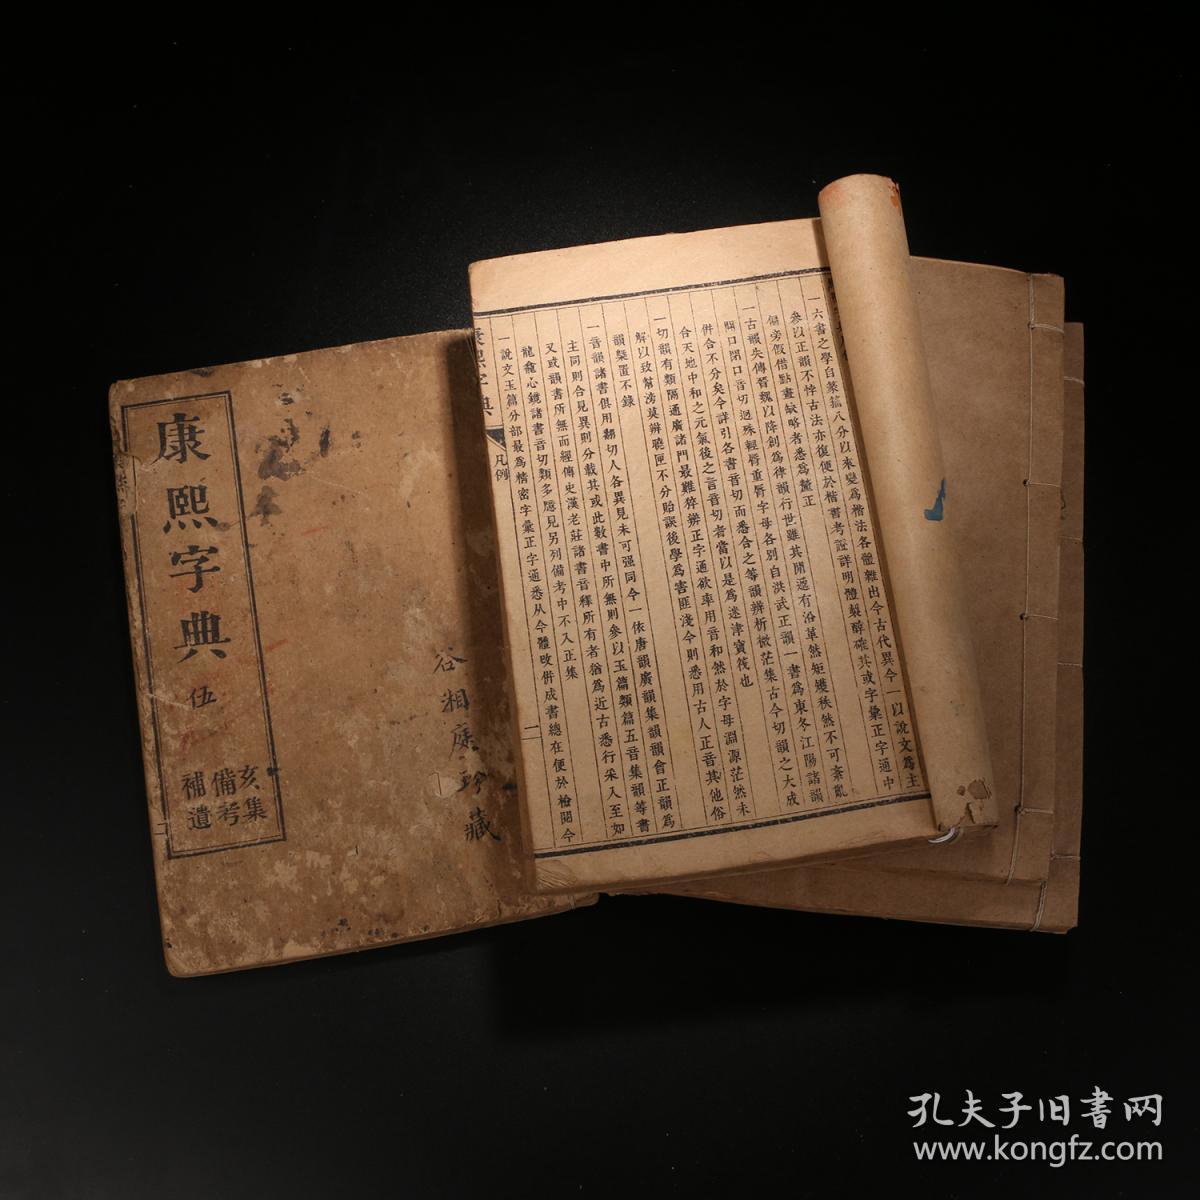 康熙字典 伍
亥集
備考
補遺
谷湘庭珍藏
一六書之學自篆籀八分以來變為楷法各體雜出今古代異今一以說文為主
參以正韻不悖古法亦復便於楷書考證詳明體製醇確其或字彙正字通中
偏旁假借點畫缺略者悉為釐正
一古韻失傳晉魏以降創為律韻行世雖其閒遞有沿革然矩矱秩然不可紊亂
開口閉口音切迥殊輕脣重脣字母各別自洪武正韻一書為東冬江陽諸韻
併合不分矣今詳引各書音切而悉合之等韻辨析微茫集古今切韻之大成
合天地中和之元氣後之言音切者當以是為迷津寶筏也
一切韻有類隔通廣諸門最難猝辨正字通欲率用音和然於字母淵源茫然未
解以致幫滂莫辨曉匣不分貽誤後學為害匪淺今則悉用古人正音其他俗
韻槩置不錄
一音韻諸書俱用翻切人各異見未可强同今一依唐韻廣韻集韻韻會正韻為
主同則合見異則分載其或此數書中所無則參以玉篇類篇五音集韻等書
又或韻書所無而經傳史漢老莊諸書音釋所有者猶為近古悉行采入至如
龍龕心鏡諸書音切類多臆見另列備考中不入正集
一說文玉篇分部最為精密字彙正字通悉从今體改併成書總在便於檢閱今
康熙字典
凡例
一
孔夫子旧書网
www.kongfz.com